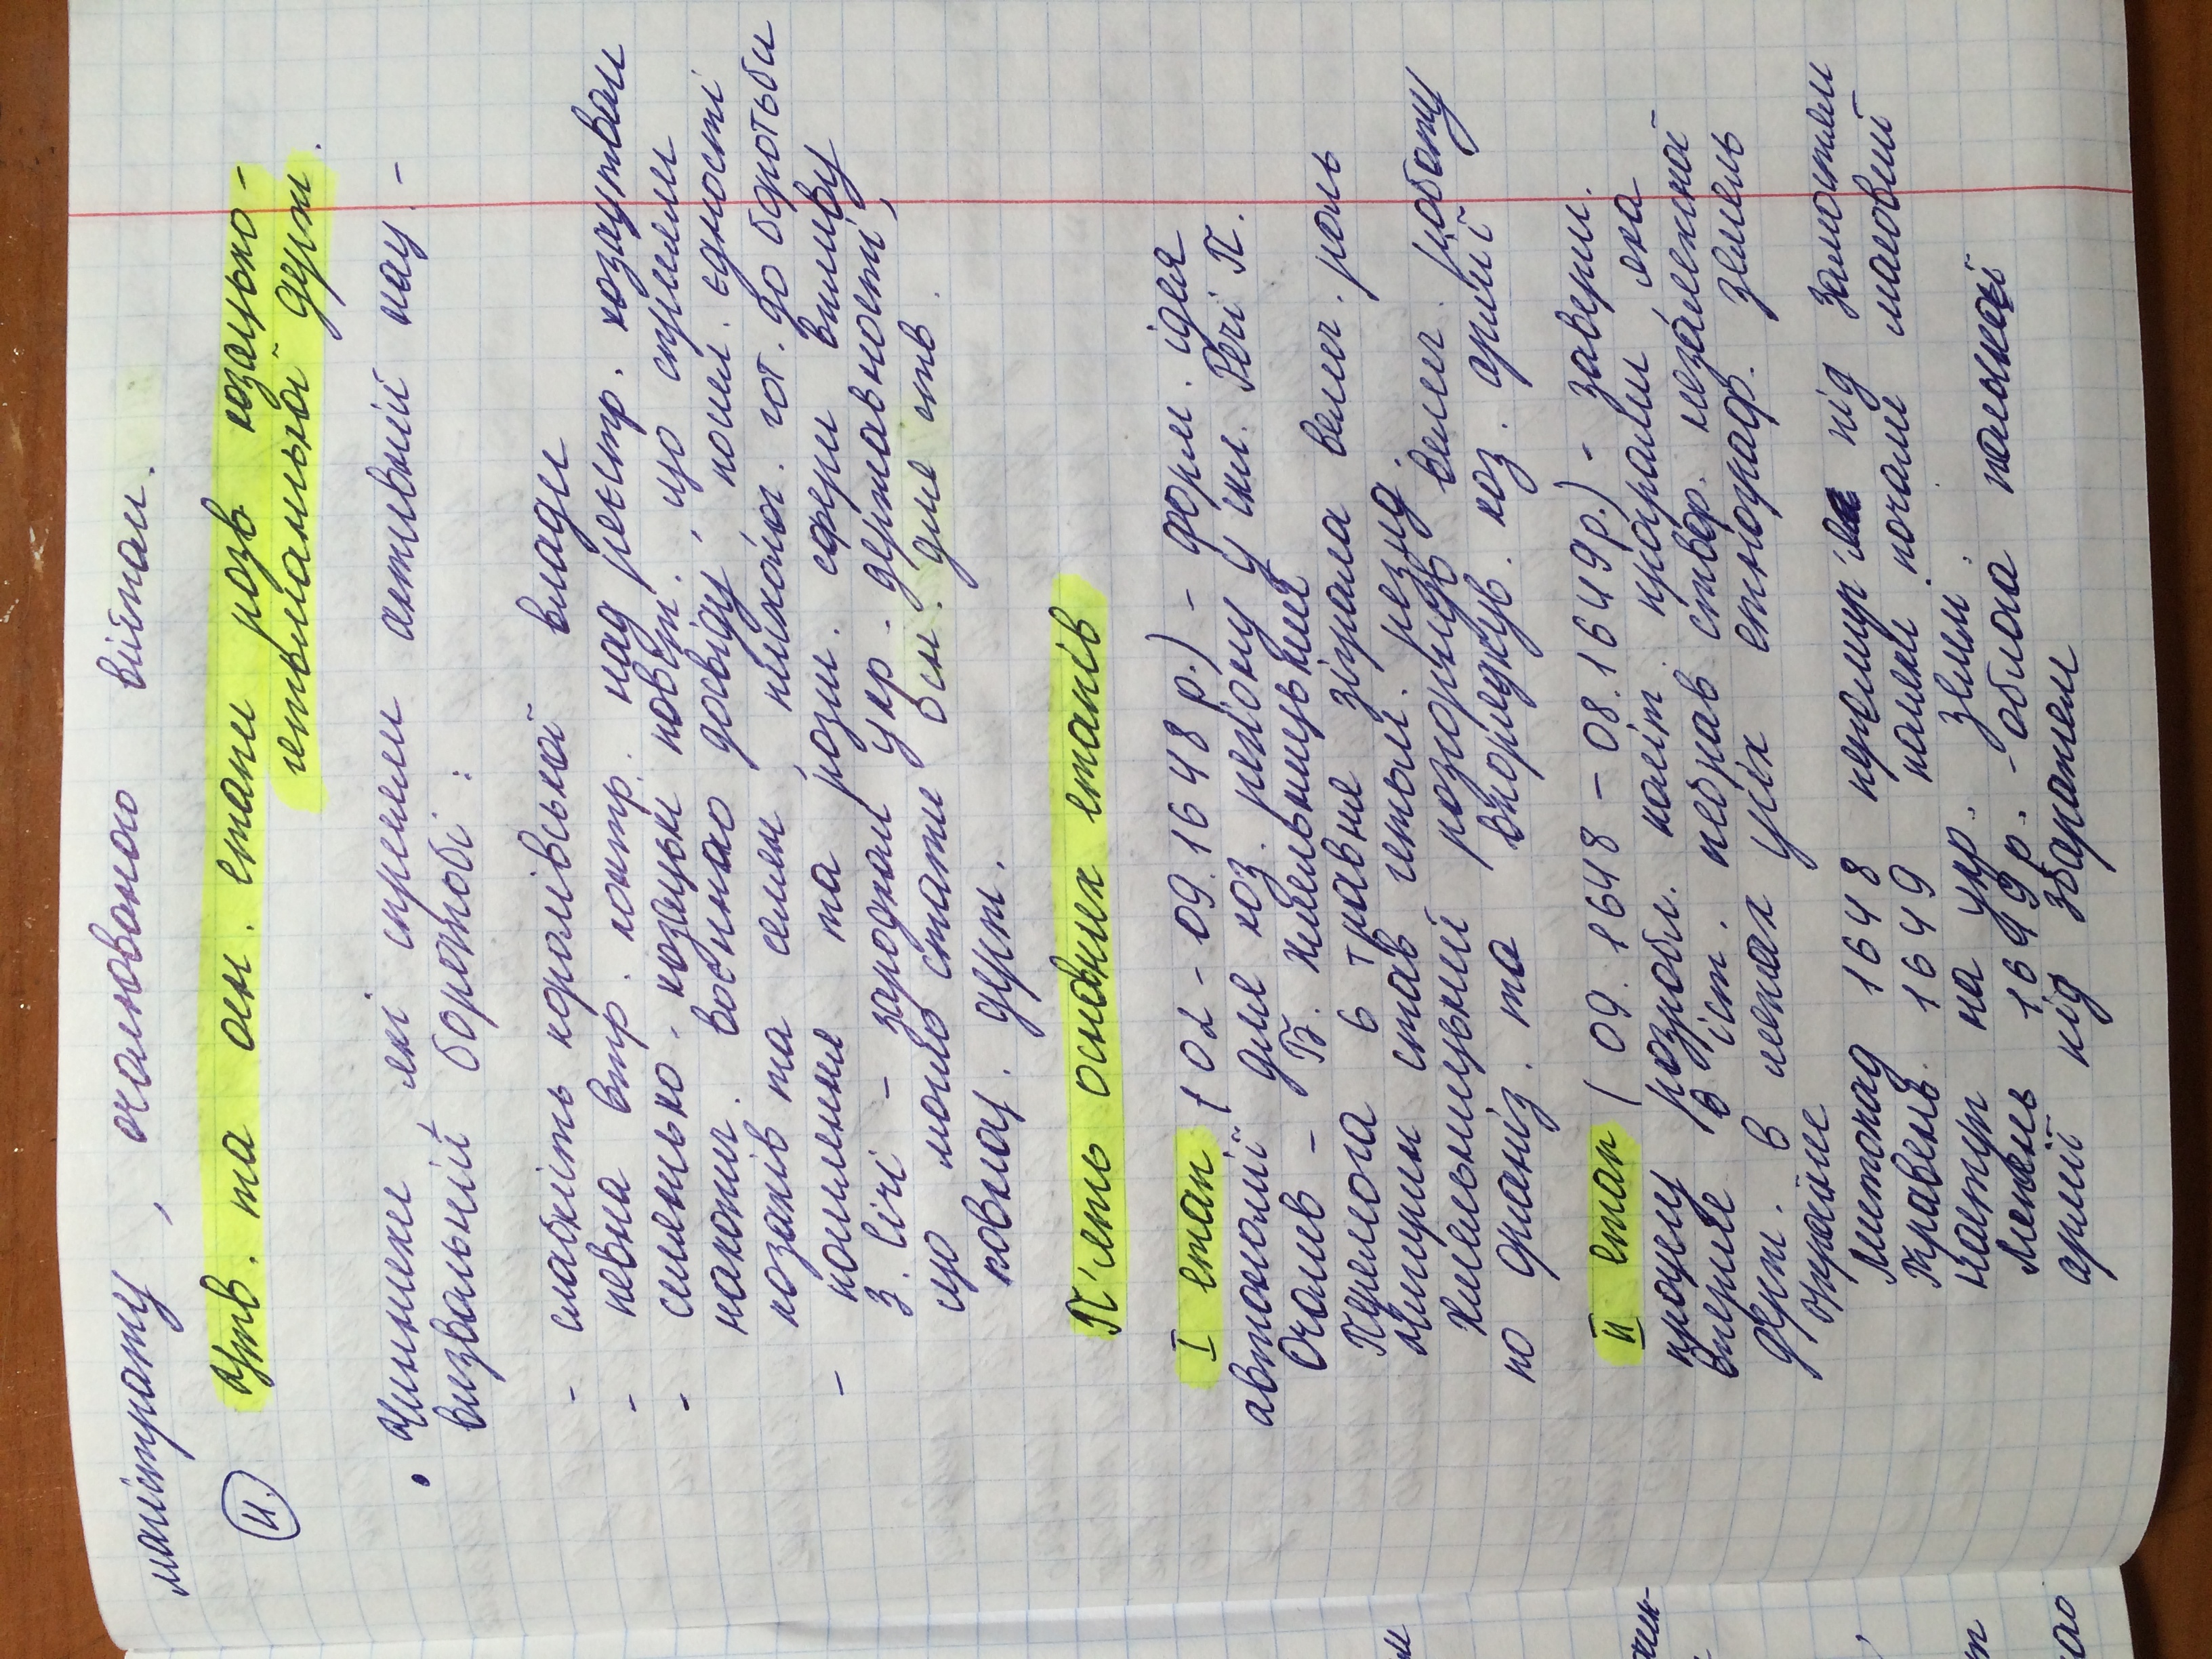 магістрату, очолюваного війтом.
II. Утв. та осн. етапи розв козацько-
гетьманської держ.
• Чинники, які сприяли активній нац.-
визвольній боротьбі:
- слабкість королівської влади
- певна втр. контр. над реєстр. козацтвом
- селянсько-козацькі повст., що сприяли
накопич. воєнного досвіду, посил. єдності
козаків та селян, психолог. гот. до боротьби
- посилення та розш. сфери впливу
З. Січі - зародком укр. державності,
що могло стати осн. для ств.
повноц. держ.
П'ять основних етапів
I етап (02 - 09.1648 р.) - форм. ідея
автономії для коз. регіону у скл. Речі П.
Очолив - Б. Хмельницький
Перемога 6 травня зіграла велич. роль
Чигирин став гетьм. резид.
Хмельницький розгорнув велич. роботу
по організ. та впорядкув. коз. армії
II етап (09.1648 - 08.1649р.) - заверш.
процесу розробл. політ. програми, яка
вперше в іст. створ. незалежної
держ. в межах усіх етнограф. земель
України
Листопад 1648 перемир'я під Замостям
Травень 1649 поляки почали масовий
наступ на укр. землі.
Липень 1649р. - облога польської
армії під Збаражем